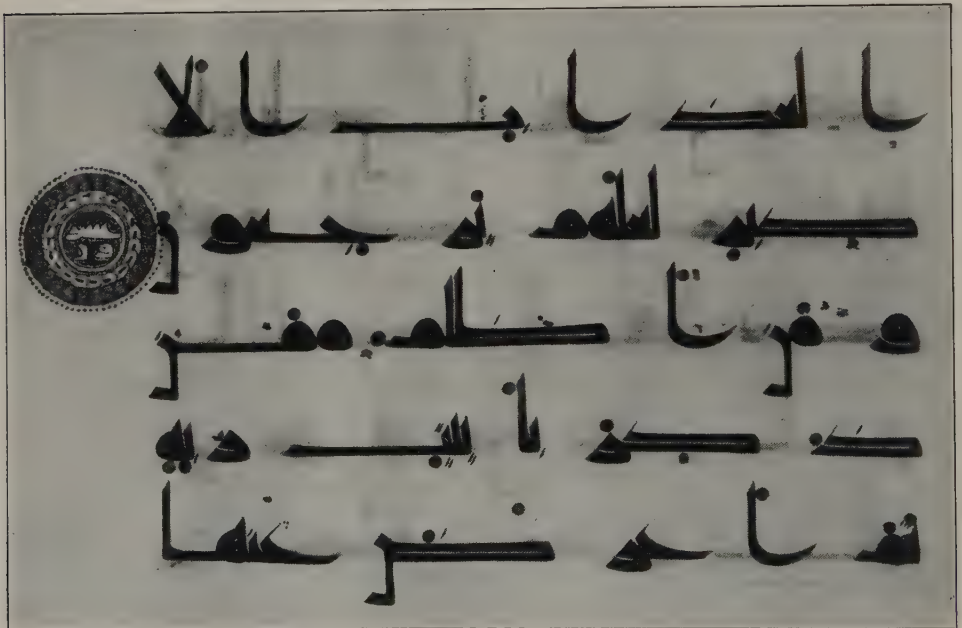 العذاب الا
كبر لعلهم يرجعون
ومن اظلم ممن
ذكر بايت ربه
ثم اعرض عنها